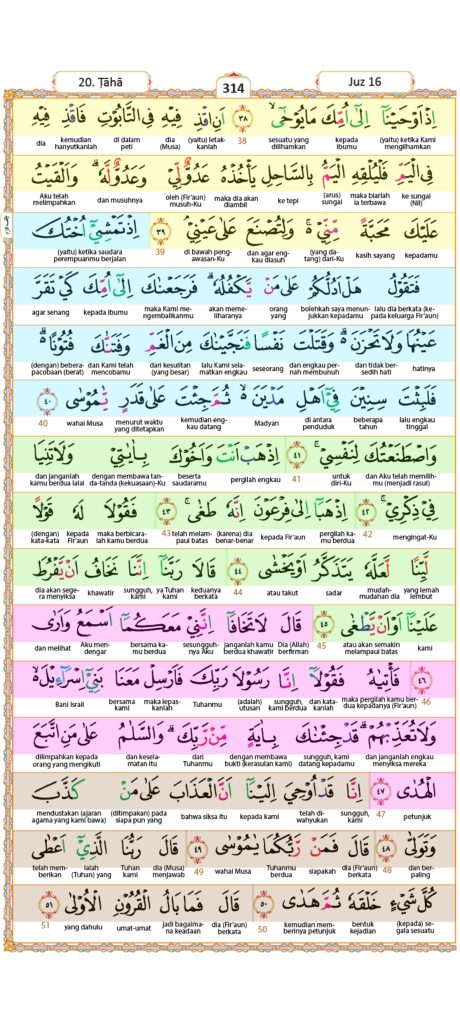 20. Ṭāhā
314
Juz 16
اِذْ اَوْحَيْنَآ اِلٰٓى اُمِّكَ مَا يُوْحٰىٓ ۙ ٣٨ اَنِ اقْذِفِيْهِ فِى التَّابُوْتِ فَاقْذِفِيْهِ
(yaitu) ketika Kami mengilhamkan kepada ibumu sesuatu yang diilhamkan 38 (yaitu) letakkanlah dia (Musa) di dalam peti kemudian hanyutkanlah dia
فِى الْيَمِّ فَلْيُلْقِهِ الْيَمُّ بِالسَّاحِلِ يَأْخُذْهُ عَدُوٌّ لِّيْ وَعَدُوٌّ لَّهٗ ۗ وَاَلْقَيْتُ
ke sungai (Nil) maka biarlah ia terbawa (arus) sungai ke tepi maka dia akan diambil oleh (Fir'aun) musuh-Ku dan musuhnya Aku telah melimpahkan
عَلَيْكَ مَحَبَّةً مِّنِّيْ ەۚ وَلِتُصْنَعَ عَلٰى عَيْنِيْ ۘ ٣٩ اِذْ تَمْشِيْٓ اُخْتُكَ
kepadamu kasih sayang (yang datang) dari-Ku dan agar engkau diasuh di bawah pengawasan-Ku 39 (yaitu) ketika saudara perempuanmu berjalan
فَتَقُوْلُ هَلْ اَدُلُّكُمْ عَلٰى مَنْ يَّكْفُلُهٗ ۗ فَرَجَعْنٰكَ اِلٰٓى اُمِّكَ كَيْ تَقَرَّ
lalu dia berkata (kepada keluarga Fir'aun) bolehkah saya menunjukkan kepadamu orang yang akan memeliharanya maka Kami mengembalikanmu kepada ibumu agar senang
عَيْنُهَا وَلَا تَحْزَنَ ەۗ وَقَتَلْتَ نَفْسًا فَنَجَّيْنٰكَ مِنَ الْغَمِّ وَفَتَنّٰكَ فُتُوْنًا ەۗ
hatinya dan tidak bersedih hati dan engkau pernah membunuh seseorang lalu Kami selamatkan engkau dari kesulitan (yang besar) dan Kami telah mencobamu (dengan) beberapa cobaan (berat)
فَلَبِثْتَ سِنِيْنَ فِيْٓ اَهْلِ مَدْيَنَ ەۙ ثُمَّ جِئْتَ عَلٰى قَدَرٍ يّٰمُوْسٰى ٤٠
lalu engkau tinggal beberapa tahun di antara penduduk Madyan kemudian engkau datang menurut waktu yang ditetapkan wahai Musa 40
وَاصْطَنَعْتُكَ لِنَفْسِيْ ۚ ٤١ اِذْهَبْ اَنْتَ وَاَخُوْكَ بِاٰيٰتِيْ وَلَا تَنِيَا
dan Aku telah memilihmu (menjadi rasul) untuk diri-Ku 41 pergilah engkau beserta saudaramu dengan membawa tanda-tanda (kekuasaan)-Ku dan janganlah kamu berdua lalai
فِيْ ذِكْرِيْ ۚ ٤٢ اِذْهَبَآ اِلٰى فِرْعَوْنَ اِنَّهٗ طَغٰى ۚ ٤٣ فَقُوْلَا لَهٗ قَوْلًا
mengingat-Ku 42 pergilah kamu berdua kepada Fir'aun (karena) dia benar-benar telah melampaui batas 43 maka berbicaralah kamu berdua kepada Fir'aun (dengan) kata-kata
لَّيِّنًا لَّعَلَّهٗ يَتَذَكَّرُ اَوْ يَخْشٰى ٤٤ قَالَا رَبَّنَآ اِنَّنَا نَخَافُ اَنْ يَّفْرُطَ
yang lemah lembut mudah-mudahan dia sadar atau takut 44 keduanya berkata ya Tuhan kami sungguh, kami khawatir dia akan segera menyiksa
عَلَيْنَآ اَوْ اَنْ يَّطْغٰى ٤٥ قَالَ لَا تَخَافَآ اِنَّنِيْ مَعَكُمَآ اَسْمَعُ وَاَرٰى
kami atau akan semakin melampaui batas 45 Dia (Allah) berfirman janganlah kamu berdua khawatir sesungguhnya Aku bersama kamu berdua Aku mendengar dan melihat
٤٦ فَأْتِيٰهُ فَقُوْلَآ اِنَّا رَسُوْلَا رَبِّكَ فَاَرْسِلْ مَعَنَا بَنِيْٓ اِسْرَاۤءِيْلَ ەۙ
46 maka pergilah kamu berdua kepadanya (Fir'aun) dan katakanlah sungguh, kami berdua (adalah) utusan Tuhanmu maka lepaskanlah bersama kami Bani Israil
وَلَا تُعَذِّبْهُمْ ۗ قَدْ جِئْنٰكَ بِاٰيَةٍ مِّنْ رَّبِّكَ ۗ وَالسَّلٰمُ عَلٰى مَنِ اتَّبَعَ
dan janganlah engkau menyiksa mereka sungguh, kami datang kepadamu dengan membawa bukti (kerasulan kami) dari Tuhanmu dan keselamatan itu dilimpahkan kepada orang yang mengikuti
الْهُدٰى ٤٧ اِنَّا قَدْ اُوْحِيَ اِلَيْنَآ اَنَّ الْعَذَابَ عَلٰى مَنْ كَذَّبَ
petunjuk 47 sungguh, kami telah diwahyukan kepada kami bahwa siksa itu (ditimpakan) pada siapa pun yang mendustakan (ajaran agama yang kami bawa)
وَتَوَلّٰى ٤٨ قَالَ فَمَنْ رَّبُّكُمَا يٰمُوْسٰى ٤٩ قَالَ رَبُّنَا الَّذِيْٓ اَعْطٰى
dan berpaling 48 dia (Fir'aun) berkata siapakah Tuhanmu berdua wahai Musa 49 dia (Musa) menjawab Tuhan kami ialah (Tuhan) yang telah memberikan
كُلَّ شَيْءٍ خَلْقَهٗ ثُمَّ هَدٰى ٥٠ قَالَ فَمَا بَالُ الْقُرُوْنِ الْاُوْلٰى ٥١
(kepada) segala sesuatu bentuk kejadian kemudian memberinya petunjuk 50 dia (Fir'aun) berkata jadi bagaimana keadaan umat-umat yang dahulu 51